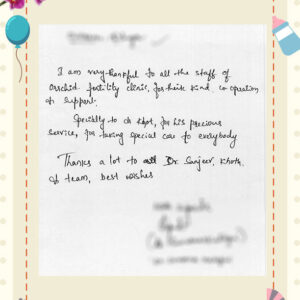 I am very thankful to all the staff of
Orchid fertility clinic, for their kind co operation
& support.
Specially to dr Khot, for his precious
service, for taking special care to everybody
Thanks a lot to all Dr. Sanjeev, Khot
& team, best wishes